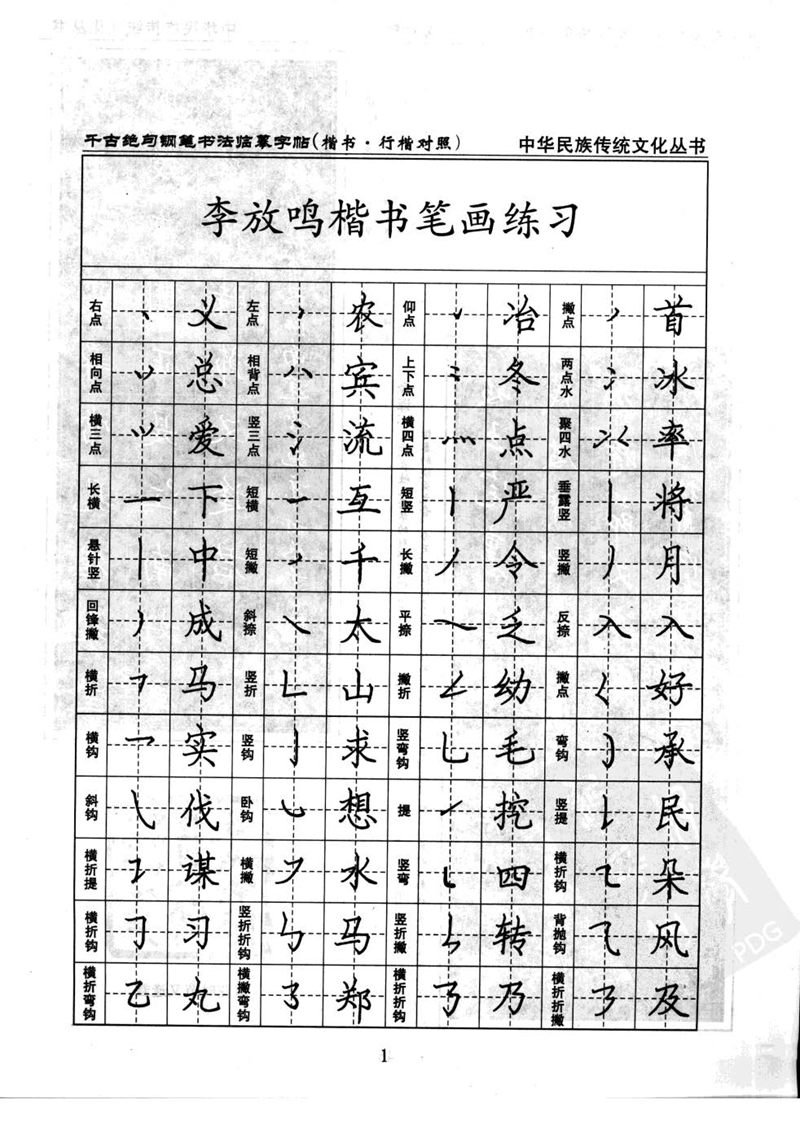 千古绝句钢笔书法临摹字帖(楷书·行楷对照) 中华民族传统文化丛书
李放鸣楷书笔画练习
右点 丶 义 左点 农 仰点 冶 撇点 首
相向点 总 相背点 宾 上下点 冬 两点水 冫 冰
横三点 爱 竖三点 氵 流 横四点 灬 点 聚四水 率
长横 一 下 短横 一 互 短竖 丨 严 垂露竖 丨 将
悬针竖 丨 中 短撇 丿 千 长撇 丿 令 竖撇 丿 月
回锋撇 丿 成 斜捺 ㇏ 太 平捺 ㇏ 乏 反捺 入 入
横折 ㇕ 马 竖折 ㇗ 山 撇折 ㇜ 幼 撇点 ㇛ 好
横钩 乛 实 竖钩 亅 求 竖弯钩 乚 毛 弯钩 ㇁ 承
斜钩 ㇂ 伐 卧钩 ㇃ 想 提 ㇀ 挖 竖提 ㇙ 民
横折提 ㇊ 谋 横撇 ㇇ 水 竖弯 ㇄ 四 横折钩 ㇍ 朵
横折钩 ㇆ 习 竖折折钩 ㇉ 马 竖折撇 ㇞ 转 背抛钩 ⺄ 风
横折弯钩 ㇈ 丸 横撇弯钩 ㇌ 郑 横折折折钩 ㇡ 乃 横折折撇 ㇋ 及
1
PDG